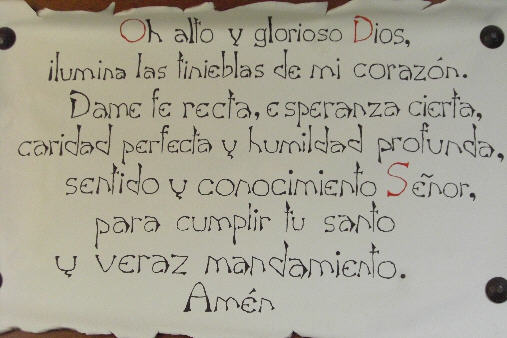 Oh alto y glorioso Dios,
ilumina las tinieblas de mi corazón.
Dame fe recta, esperanza cierta,
caridad perfecta y humildad profunda,
sentido y conocimiento Señor,
para cumplir tu santo
y veraz mandamiento.
Amén